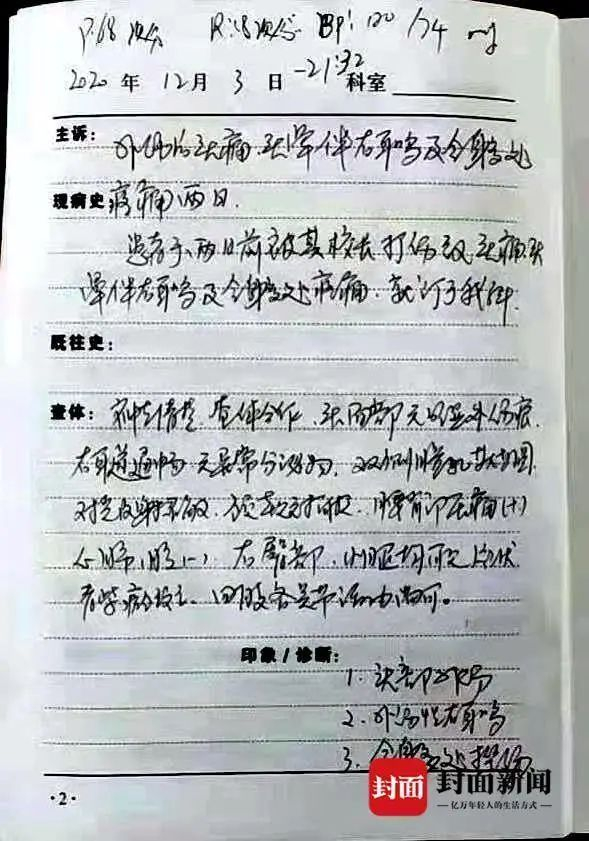 P:68次/分 R:18次/分 BP:120/74 mmHg
2020 年 12 月 3 日 -21:32 科室
主诉: 外伤后头痛头晕伴右耳鸣及全身多处
现病史: 疼痛两日.
患者于两日前被其校长打伤致头痛头
晕伴右耳鸣及全身多处疼痛.就诊于我科.
既往史:
查体: 神志清楚,查体合作,头面部无明显外伤痕
右耳道通畅 无异常分泌物,双侧瞳孔等大等圆
对光反射灵敏,颈软无抵抗,腰背部压痛(+)
心肺腹(-) 右臀部,
青紫 四肢各关节活动尚可。
印象/诊断:
1.头部外伤
2.外伤性右耳鸣
3.全身多处挫伤
·2·
封面 封面新闻
亿万年轻人的生活方式